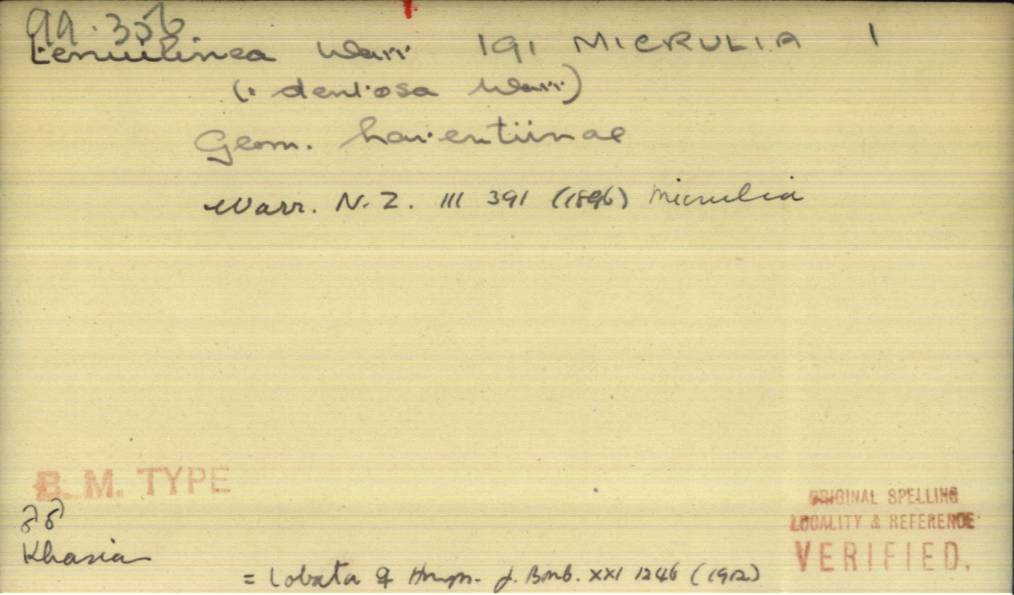 99.356
tenuilinea Warr 191 MICRULIA 1
(: dentosa Warr)
Geom. Larentiinae
Warr. N. Z. III 391 (1896) Micrulia
B. M. TYPE
♂♂
Khasia
ORIGINAL SPELLING
LOCALITY & REFERENCE
VERIFIED.
= Lobata ♀ Hmpn. J. Bomb. XXI 1246 (1912)